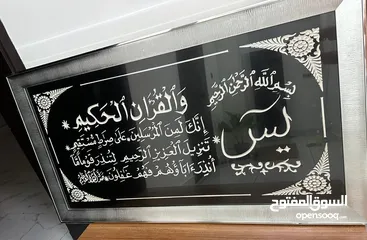 بسم الله الرحمن الرحيم
يس
والقرآن الحكيم
إنك لمن المرسلين على صراط مستقيم
تنزيل العزيز الرحيم لتنذر قوما ما
أنذر ءاباؤهم فهم غافلون
السوق المفتوح
opensooq.com